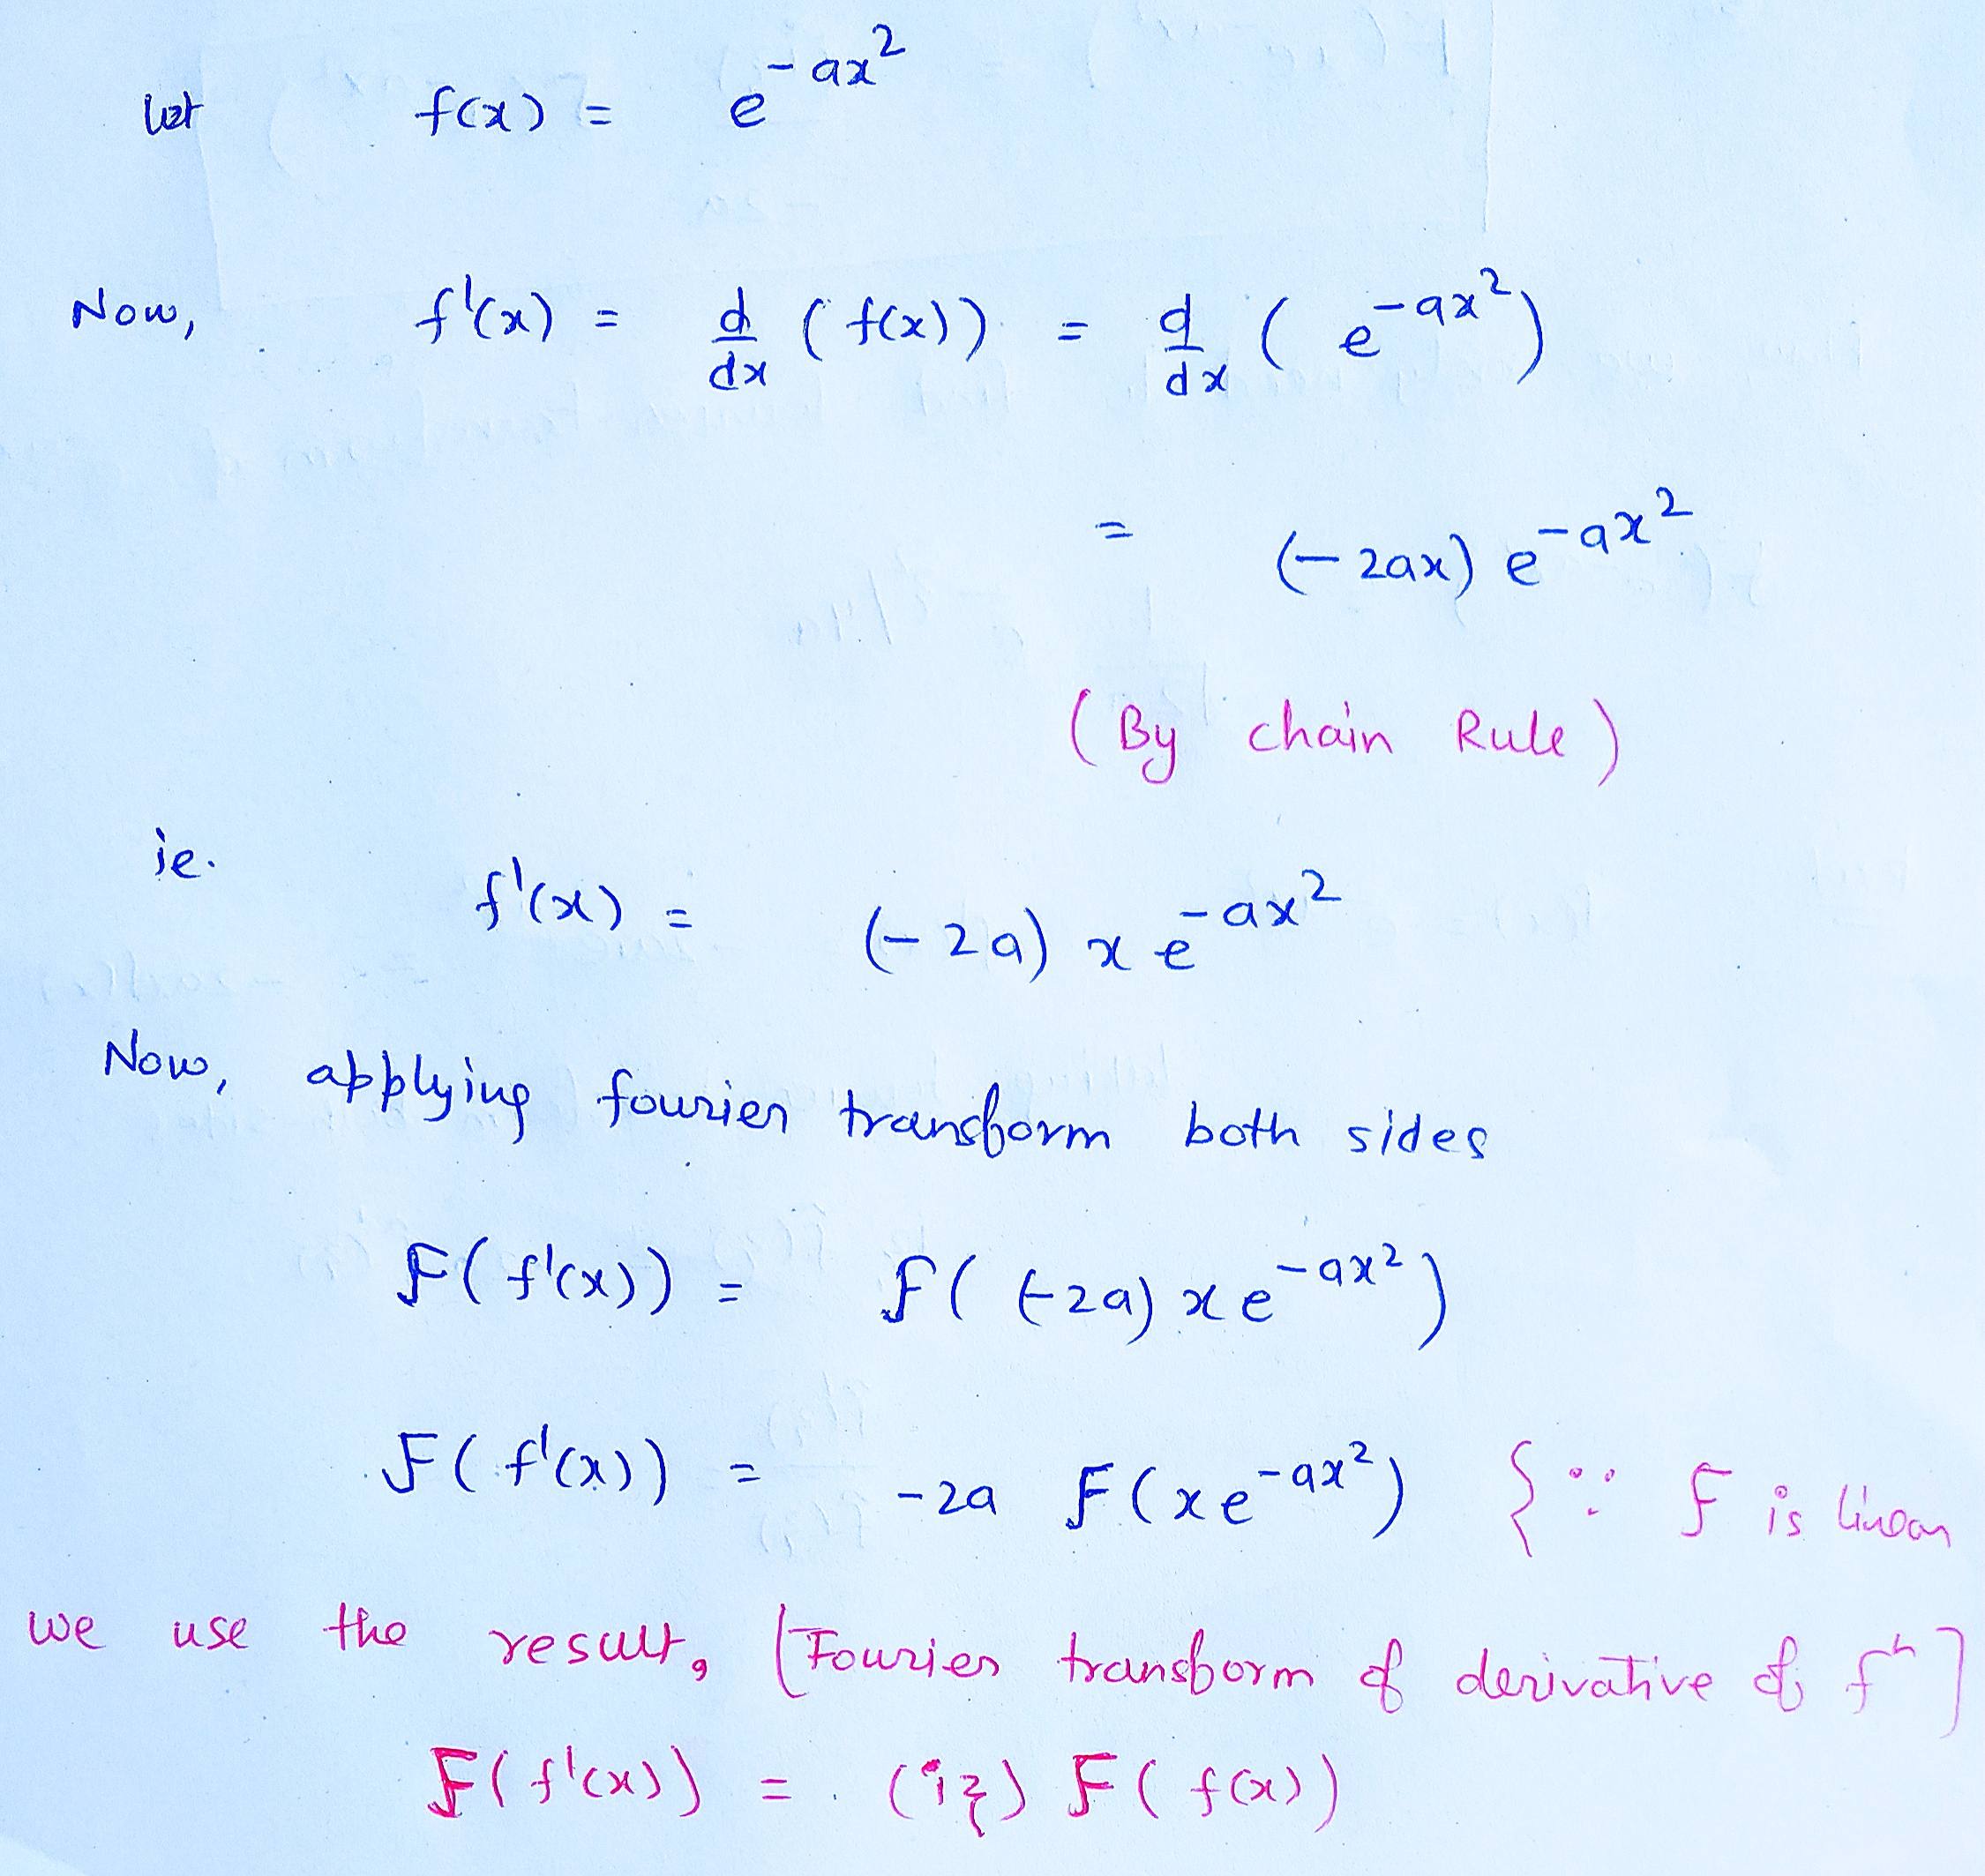 let f(x) = e^{-ax^2}
Now, f'(x) = d/dx (f(x)) = d/dx (e^{-ax^2})
= (-2ax) e^{-ax^2}
(By chain Rule)
ie.
f'(x) = (-2a) x e^{-ax^2}
Now, applying fourier transform both sides
F(f'(x)) = F((-2a) x e^{-ax^2})
F(f'(x)) = -2a F(x e^{-ax^2}) {∵ F is linear
we use the result, [Fourier transform of derivative of f^n]
F(f'(x)) = (iξ) F(f(x))